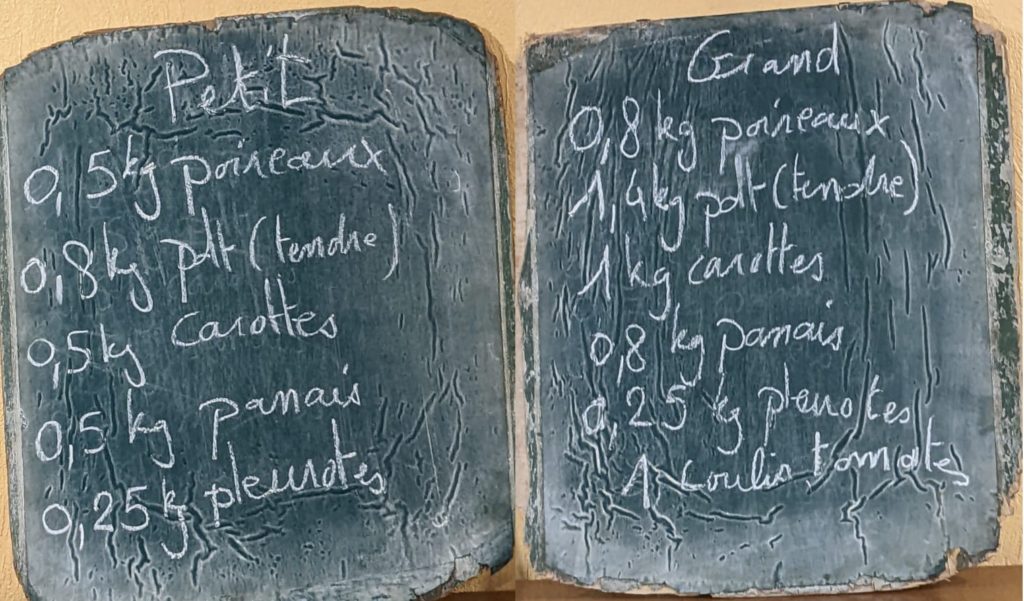 Petit
0,5 kg poireaux
0,8 kg pdt (tendre)
0,5 kg carottes
0,5 kg panais
0,25 kg pleurotes
Grand
0,8 kg poireaux
1,4 kg pdt (tendre)
1 kg carottes
0,8 kg panais
0,25 kg pleurotes
1 coulis tomates